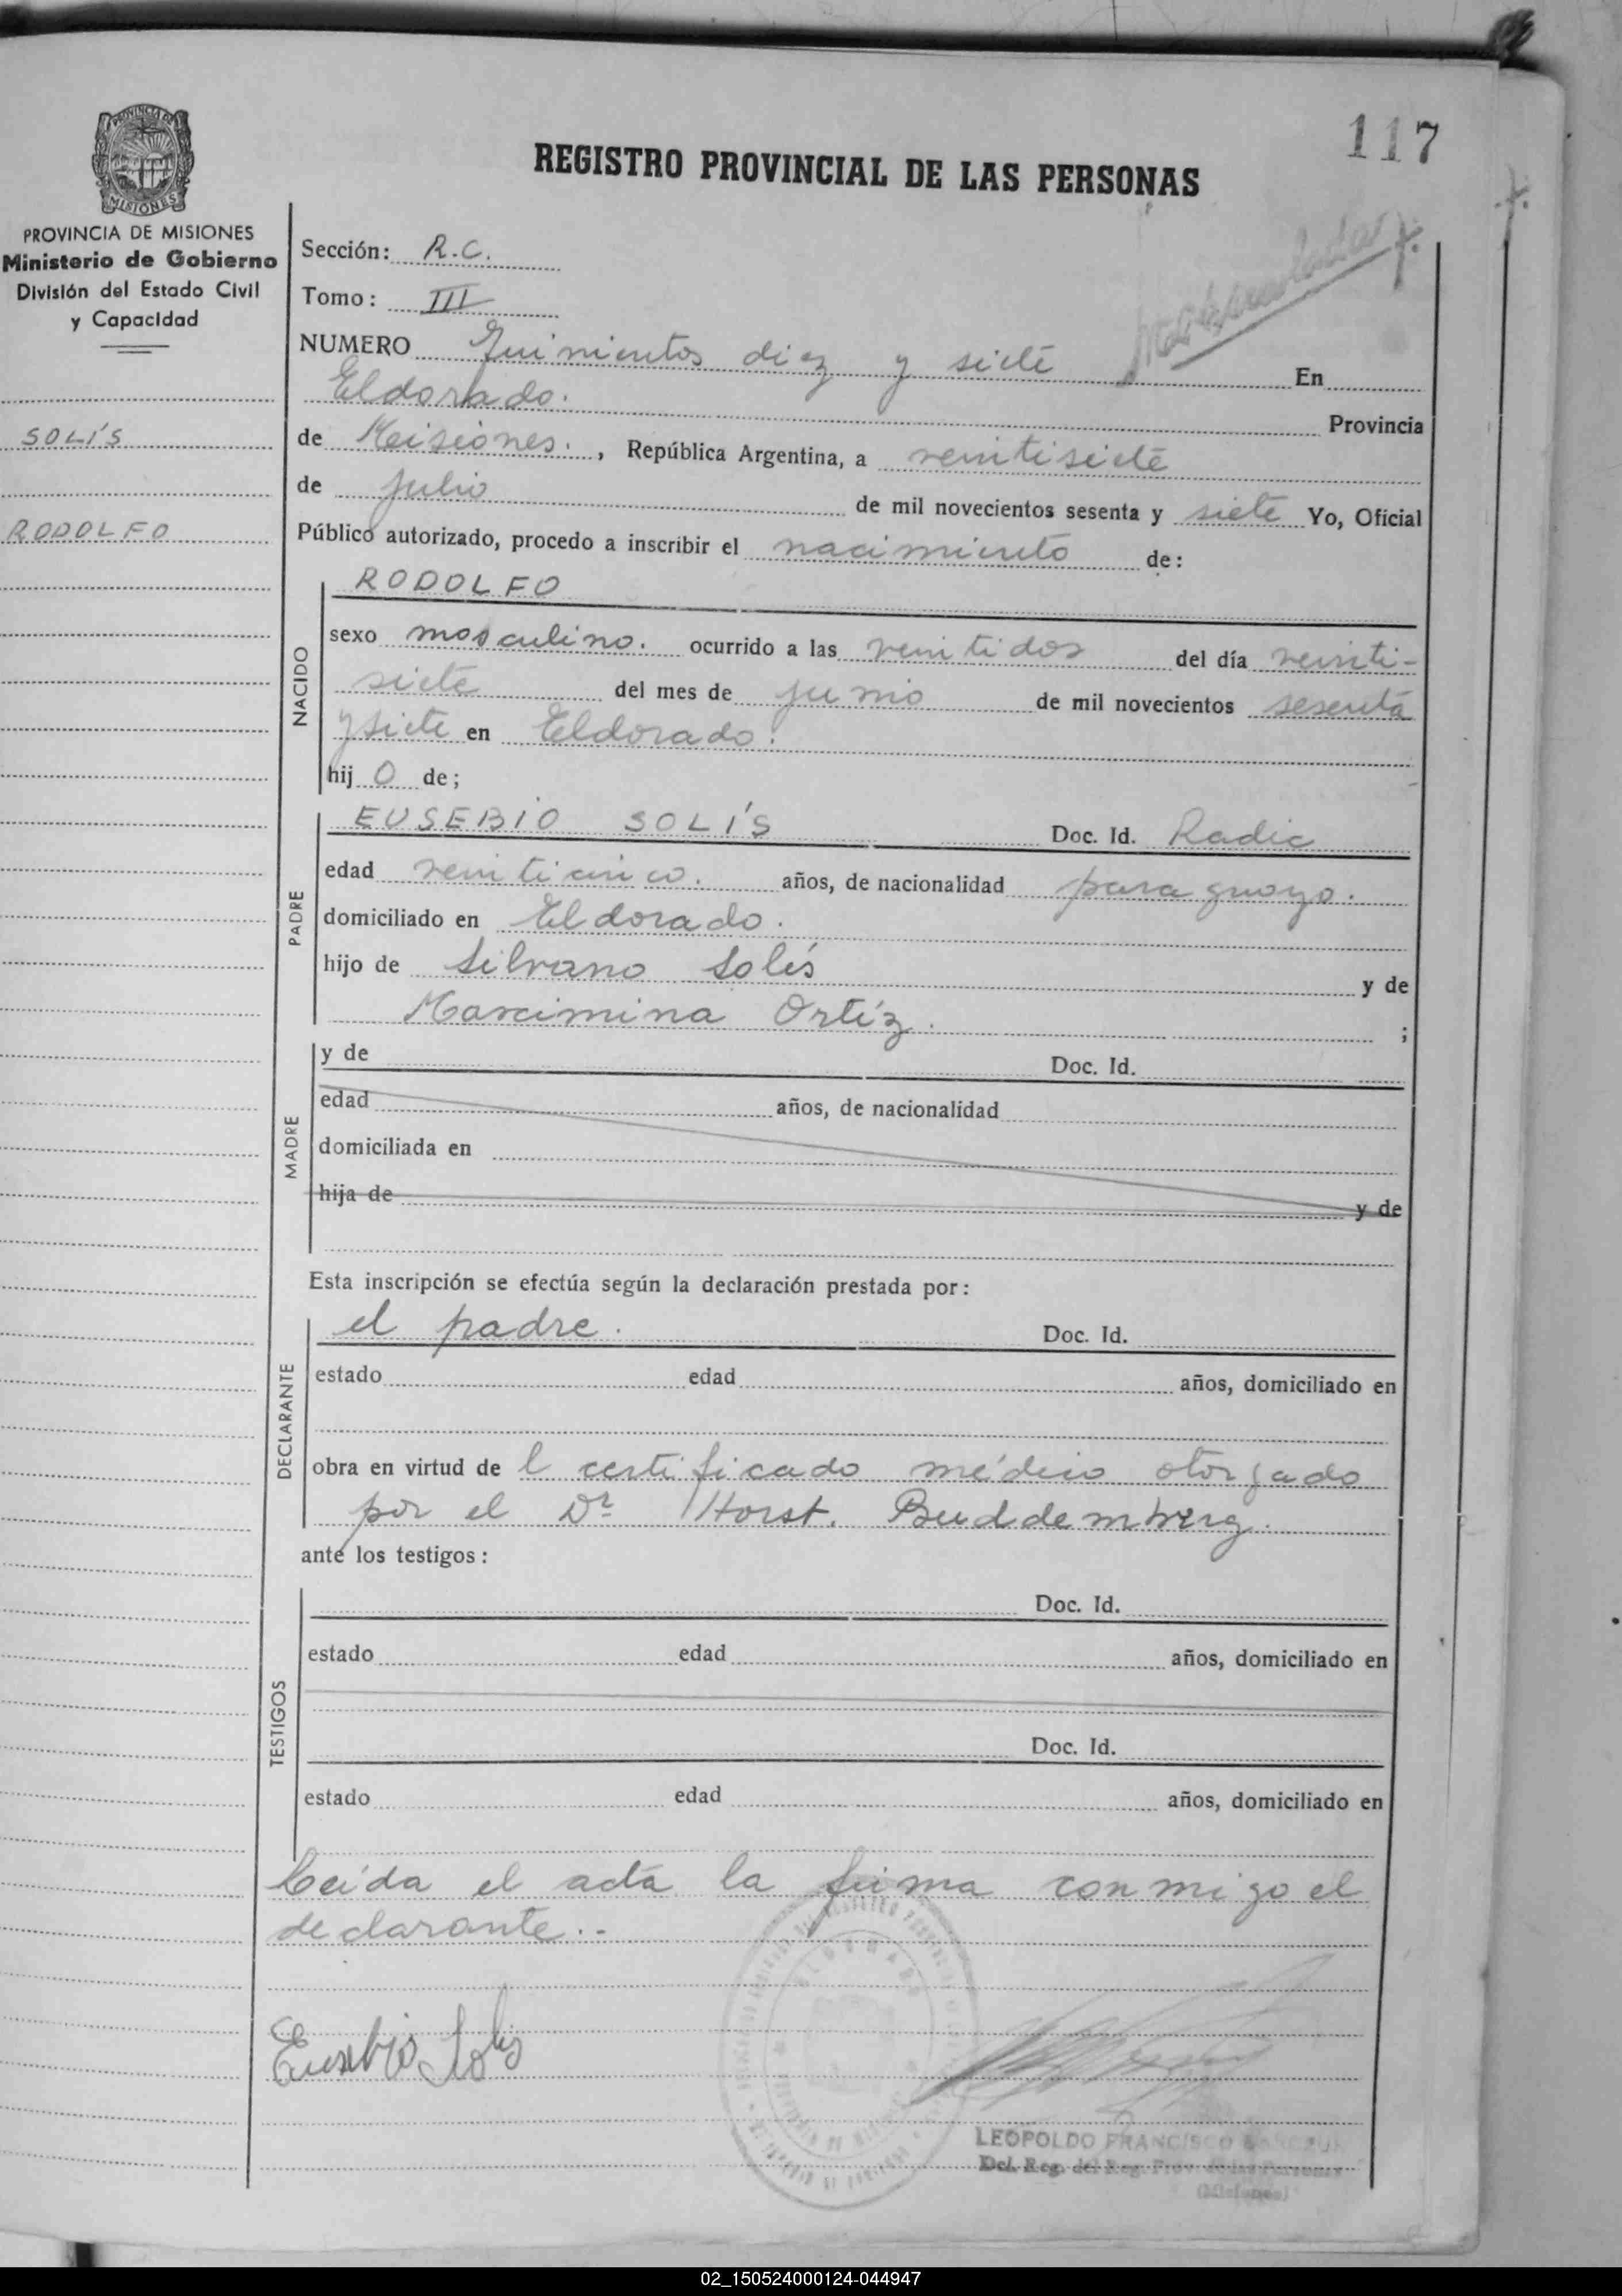 117
PROVINCIA DE
MISIONES
REGISTRO PROVINCIAL DE LAS PERSONAS
PROVINCIA DE MISIONES
Ministerio de Gobierno
División del Estado Civil
y Capacidad
SOLÍS
RODOLFO
Sección: R.C.
Tomo: III
NUMERO Quinientos diez y siete En
Eldorado. Provincia
de Misiones., República Argentina, a veintisiete
de julio de mil novecientos sesenta y siete Yo, Oficial
Público autorizado, procedo a inscribir el nacimiento de:
NACIDO
RODOLFO
sexo masculino. ocurrido a las veintidos del día veinti-
siete del mes de junio de mil novecientos sesenta
y siete en Eldorado.
hij o de;
PADRE
EUSEBIO SOLÍS Doc. Id. Radic
edad veinticinco. años, de nacionalidad paraguayo.
domiciliado en Eldorado.
hijo de Silvano Solís y de
Marcimina Ortíz. ;
MADRE
y de Doc. Id.
edad años, de nacionalidad
domiciliada en
hija de y de
Esta inscripción se efectúa según la declaración prestada por:
DECLARANTE
el padre. Doc. Id.
estado edad años, domiciliado en
obra en virtud de l certificado médico otorgado
por el Dr Horst. Buddemberg.
ante los testigos:
TESTIGOS
Doc. Id.
estado edad años, domiciliado en
Doc. Id.
estado edad años, domiciliado en
Leída el acta la firma conmigo el
declarante.-
Eusebio Solis
LEOPOLDO FRANCISCO
Del. Reg. del Reg. Prov. de las Personas
(Misiones)
02_150524000124-044947